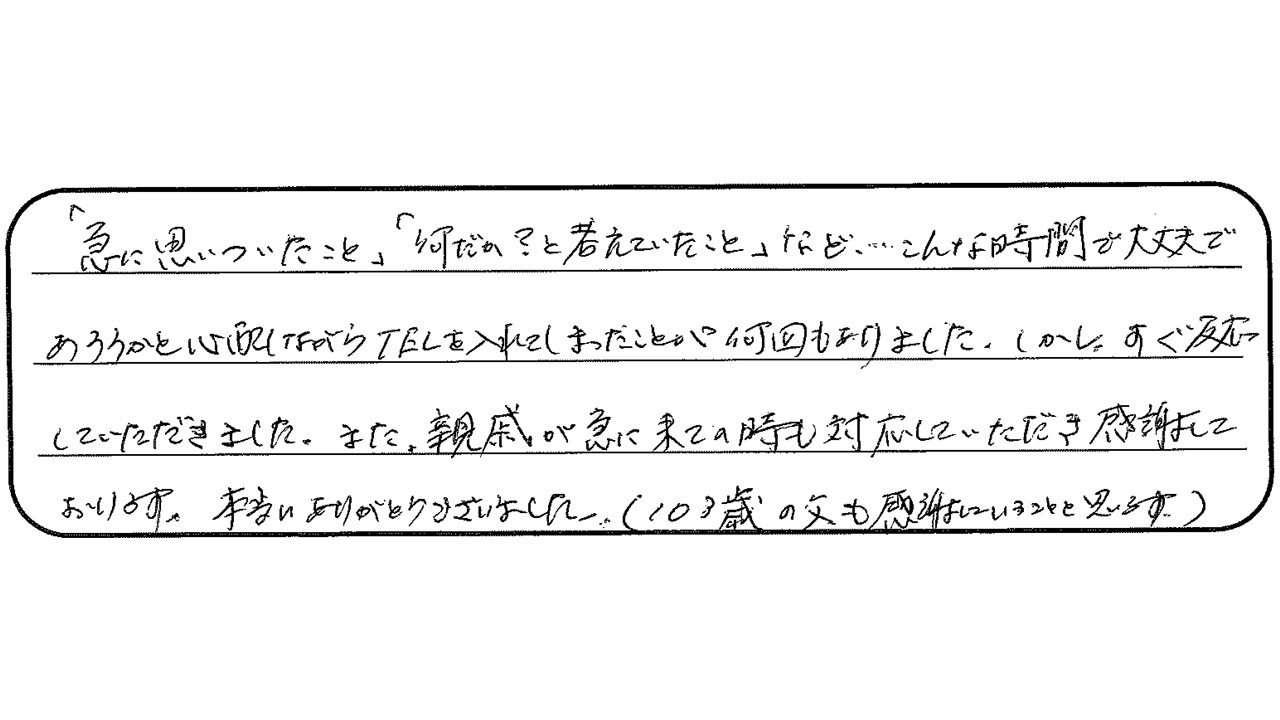 「急に思いついたこと」「何だか?と考えていたこと」など、……こんな時間で大丈夫で
あろうかと心配しながらTELを入れてしまったことが何回もありました。しかし、すぐ反応
していただきました。また、親戚が急に来ての時も対応していただき感謝して
おります。本当にありがとうございました。(103歳の父も感謝していることと思います。)